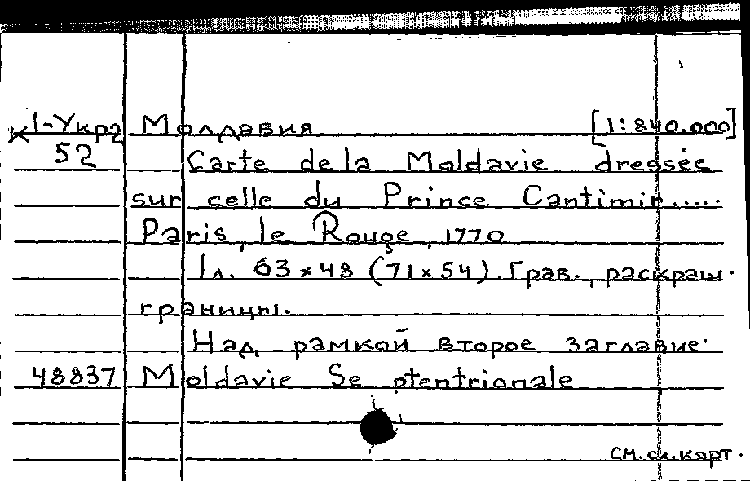 К1-Укр2 Молдавия [1:840.000]
52 Carte de la Moldavie dressée
sur celle du Prince Cantimir.....
Paris, le Rouge, 1770
1л. 63×48 (71×54). Грав., раскраш.
границы.
Над рамкой второе заглавие.
48837 Moldavie Se ptentrionale
см. сл. карт.